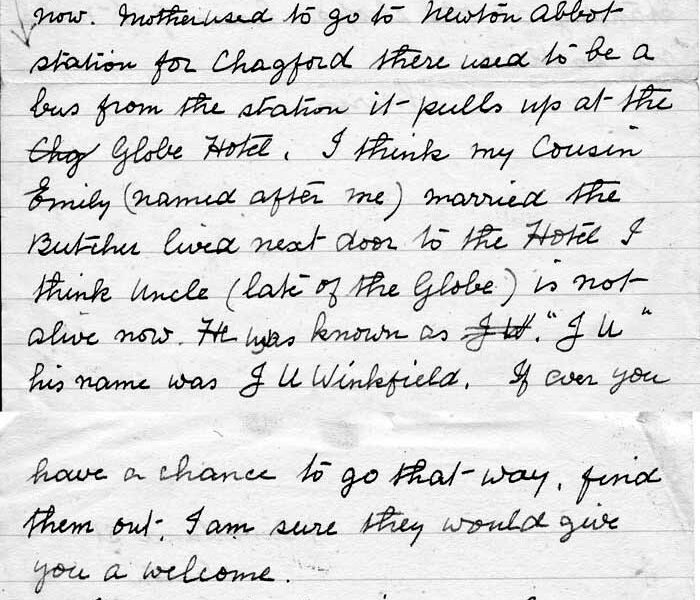 now. Mother used to go to Newton Abbot
station for Chagford there used to be a
bus from the station it pulls up at the
Chg Globe Hotel. I think my Cousin
Emily (named after me) married the
Butcher lived next door to the Hotel I
think Uncle (late of the Globe) is not
alive now. He was known as J W. "J U"
his name was J U Winkfield. If ever you
have a chance to go that way, find
them out. I am sure they would give
you a welcome.